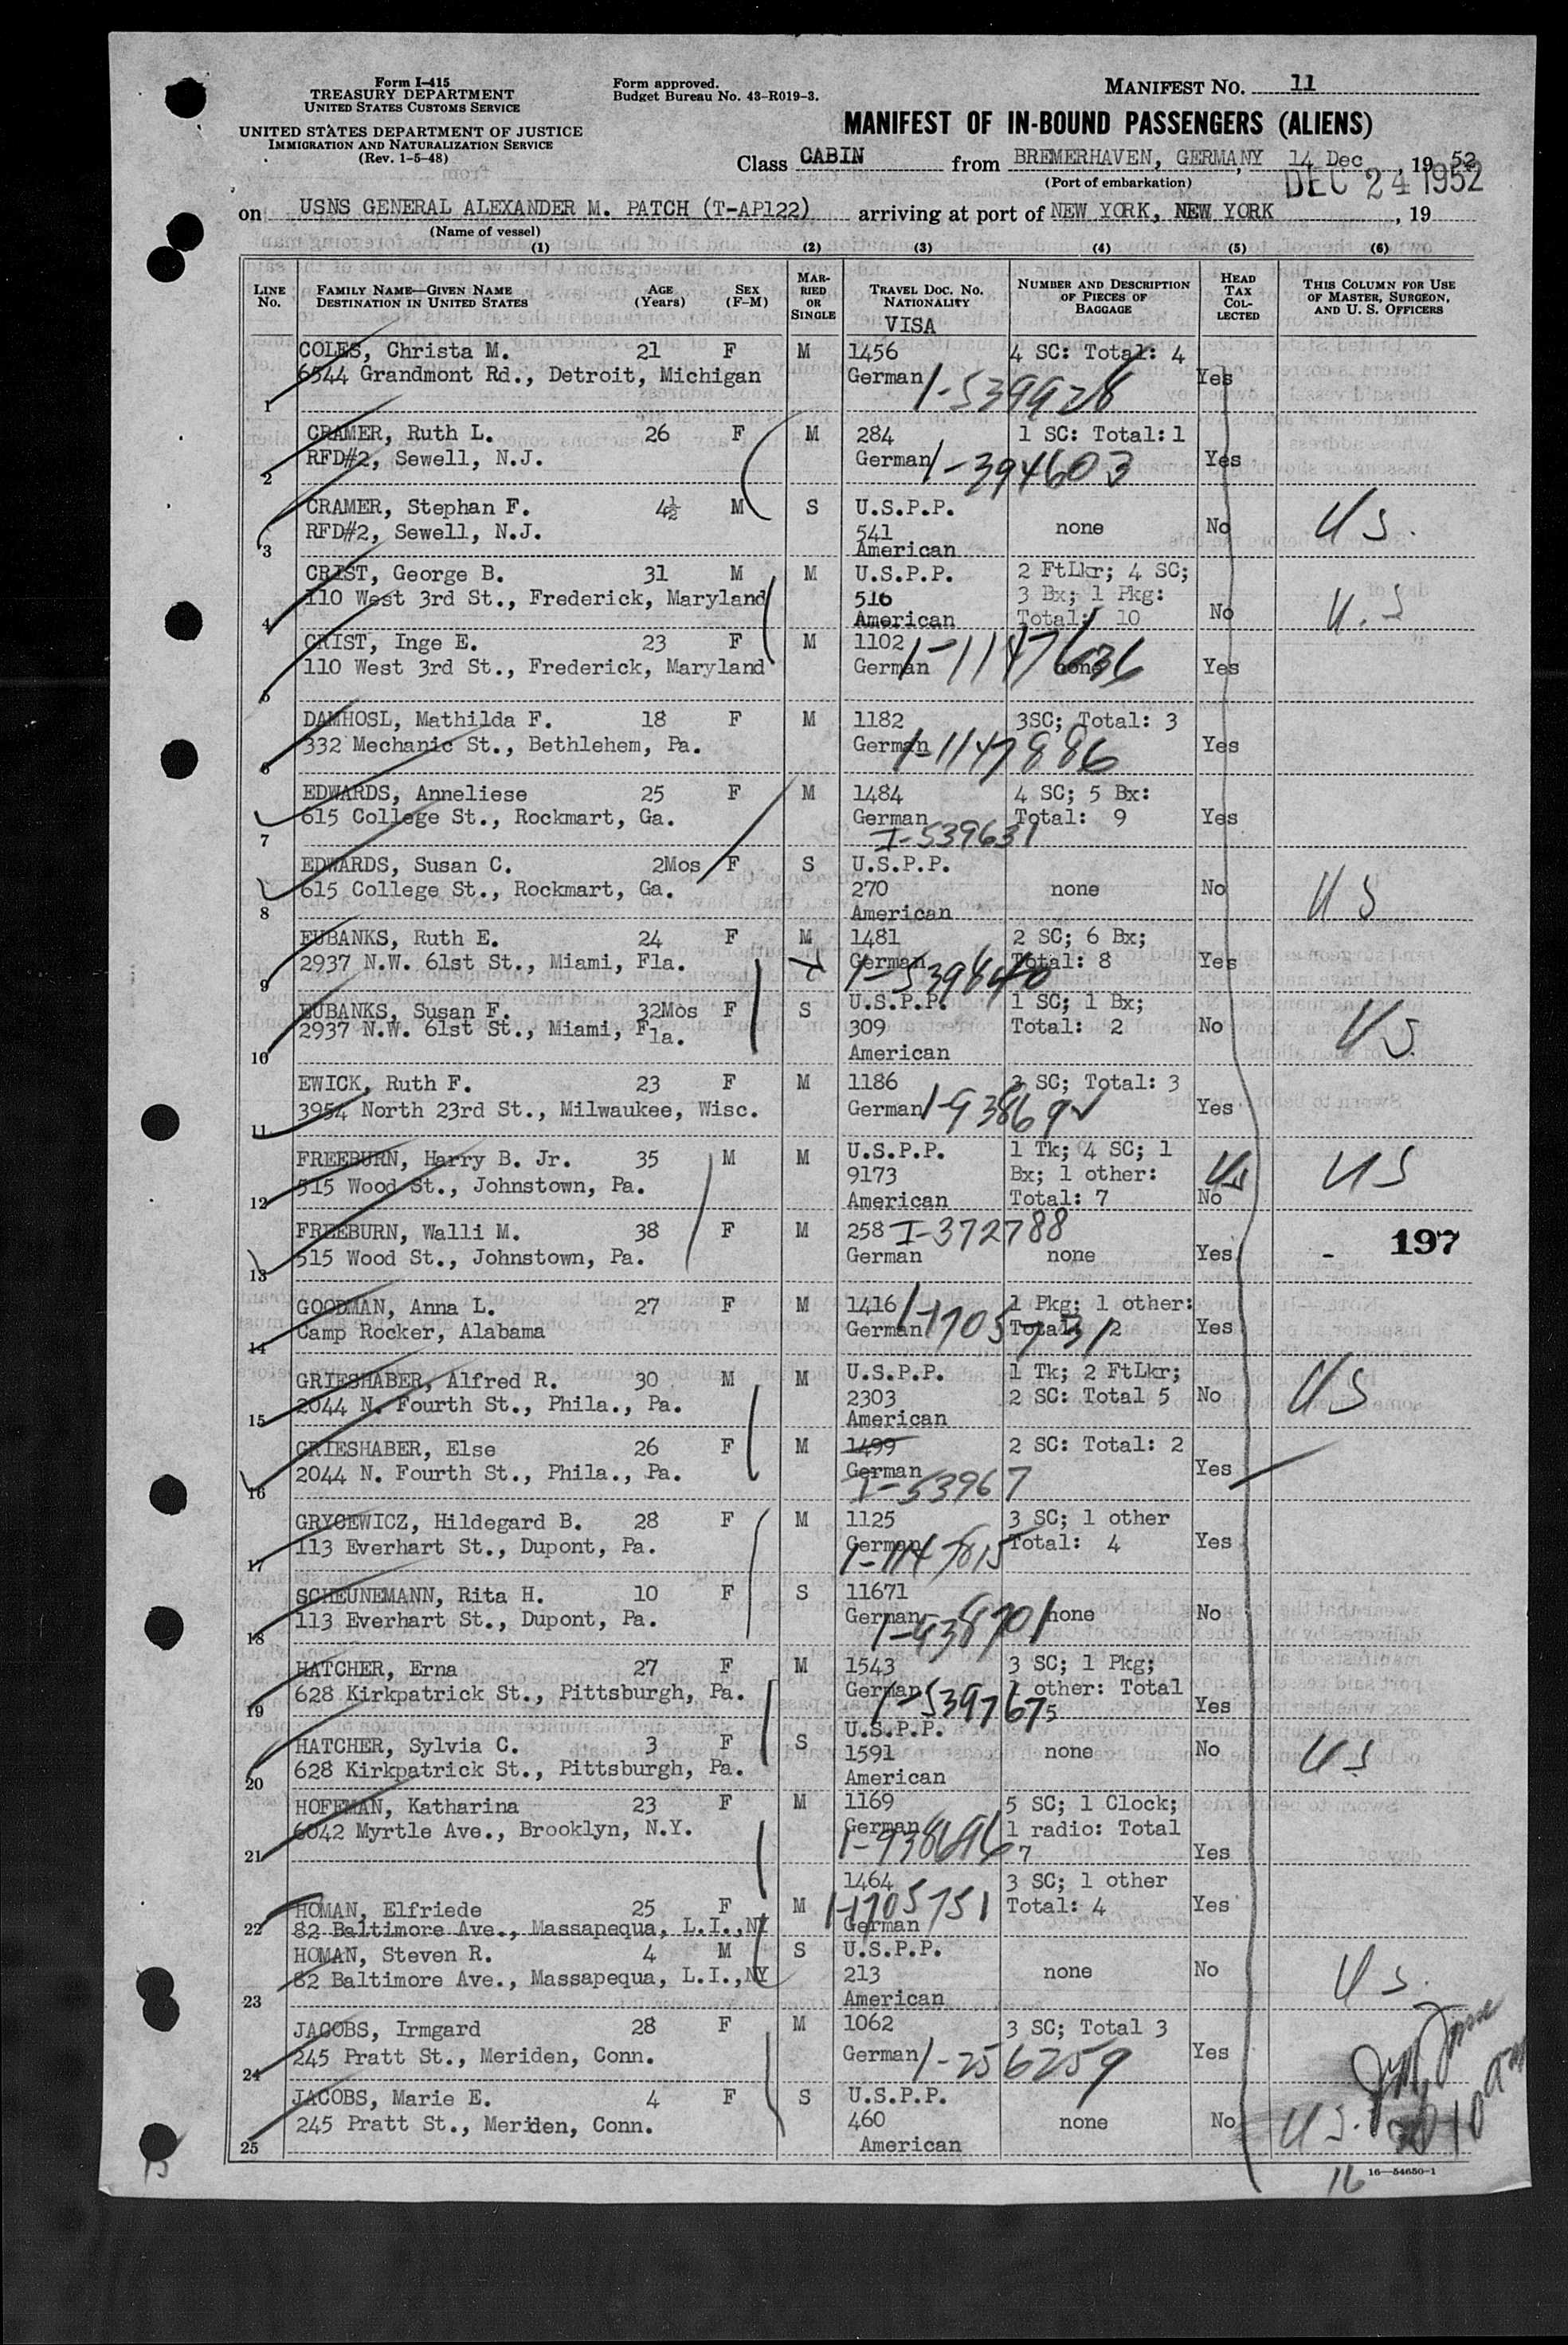 Form I-415
TREASURY DEPARTMENT
UNITED STATES CUSTOMS SERVICE
UNITED STATES DEPARTMENT OF JUSTICE
IMMIGRATION AND NATURALIZATION SERVICE
(Rev. 1-5-48)
Form approved.
Budget Bureau No. 43-R019-3.
MANIFEST NO. 11
MANIFEST OF IN-BOUND PASSENGERS (ALIENS)
Class CABIN from BREMERHAVEN, GERMANY, 14 Dec, 19 52
(Port of embarkation)
DEC 24 1952
on USNS GENERAL ALEXANDER M. PATCH (T-AP122) arriving at port of NEW YORK, NEW YORK, 19
(Name of vessel)
(1) (2) (3) (4) (5) (6)
LINE No. FAMILY NAME—GIVEN NAME DESTINATION IN UNITED STATES AGE (Years) SEX (F-M) MARRIED OR SINGLE TRAVEL DOC. NO. NATIONALITY NUMBER AND DESCRIPTION OF PIECES OF BAGGAGE HEAD TAX COLLECTED THIS COLUMN FOR USE OF MASTER, SURGEON, AND U. S. OFFICERS
VISA
COLES, Christa M. 21 F M 1456 4 SC: Total: 4
6544 Grandmont Rd., Detroit, Michigan German 1-539928 Yes
1
CRAMER, Ruth L. 26 F M 284 1 SC: Total: 1
RFD#2, Sewell, N.J. German 1-394603 Yes
2
CRAMER, Stephan F. 4½ M S U.S.P.P.
RFD#2, Sewell, N.J. 541 none No US.
3 American
CRIST, George B. 31 M M U.S.P.P. 2 FtLkr; 4 SC;
110 West 3rd St., Frederick, Maryland 516 3 Bx; 1 Pkg:
4 American Total: 10 No U.S
CRIST, Inge E. 23 F M 1102
110 West 3rd St., Frederick, Maryland German 1-1147636 none Yes
5
DAMHOSL, Mathilda F. 18 F M 1182 3SC; Total: 3
332 Mechanic St., Bethlehem, Pa. German 1-1147886 Yes
6
EDWARDS, Anneliese 25 F M 1484 4 SC; 5 Bx:
615 College St., Rockmart, Ga. German Total: 9 Yes
7 I-539631
EDWARDS, Susan C. 2Mos F S U.S.P.P.
615 College St., Rockmart, Ga. 270 none No US
8 American
EUBANKS, Ruth E. 24 F M 1481 2 SC; 6 Bx;
2937 N.W. 61st St., Miami, Fla. German Total: 8 Yes
9
EUBANKS, Susan F. 32Mos F S U.S.P.P. 1 SC; 1 Bx;
2937 N.W. 61st St., Miami, Fla. 309 Total: 2 No US
10 American
EWICK, Ruth F. 23 F M 1186 3 SC; Total: 3
3954 North 23rd St., Milwaukee, Wisc. German Yes
11
FREEBURN, Harry B. Jr. 35 M M U.S.P.P. 1 Tk; 4 SC; 1
515 Wood St., Johnstown, Pa. 9173 Bx; 1 other: US US
12 American Total: 7 No
FREEBURN, Walli M. 38 F M 258 I-372788
515 Wood St., Johnstown, Pa. German none Yes - 197
13
GOODMAN, Anna L. 27 F M 1416 1 Pkg; 1 other:
Camp Rocker, Alabama German 1-1705731 Total: 2 Yes
14
GRIESHABER, Alfred R. 30 M M U.S.P.P. 1 Tk; 2 FtLkr;
2044 N. Fourth St., Phila., Pa. 2303 2 SC: Total 5 No US
15 American
GRIESHABER, Else 26 F M 1499 2 SC: Total: 2
2044 N. Fourth St., Phila., Pa. German Yes
16 I-53967
GRYCEWICZ, Hildegard B. 28 F M 1125 3 SC; 1 other
113 Everhart St., Dupont, Pa. German Total: 4 Yes
17 1-1147815
SCHEUNEMANN, Rita H. 10 F S 11671
113 Everhart St., Dupont, Pa. German none No
18 1-938701
HATCHER, Erna 27 F M 1543 3 SC; 1 Pkg;
628 Kirkpatrick St., Pittsburgh, Pa. German 1 other: Total
19 1-539767 5 Yes
HATCHER, Sylvia C. 3 F S U.S.P.P.
628 Kirkpatrick St., Pittsburgh, Pa. 1591 none No US
20 American
HOFFMAN, Katharina 23 F M 1169 5 SC; 1 Clock;
6042 Myrtle Ave., Brooklyn, N.Y. German 1 radio: Total
21 1-938696 7 Yes
1464 3 SC; 1 other
HOMAN, Elfriede 25 F M 1-1705751 Total: 4 Yes
22 82 Baltimore Ave., Massapequa, L.I.,NY German
HOMAN, Steven R. 4 M S U.S.P.P.
82 Baltimore Ave., Massapequa, L.I.,NY 213 none No US.
23 American
JACOBS, Irmgard 28 F M 1062 3 SC; Total 3
245 Pratt St., Meriden, Conn. German 1-256259 Yes
24
JACOBS, Marie E. 4 F S U.S.P.P.
245 Pratt St., Meriden, Conn. 460 none No US.
25 American
16 16—54650-1